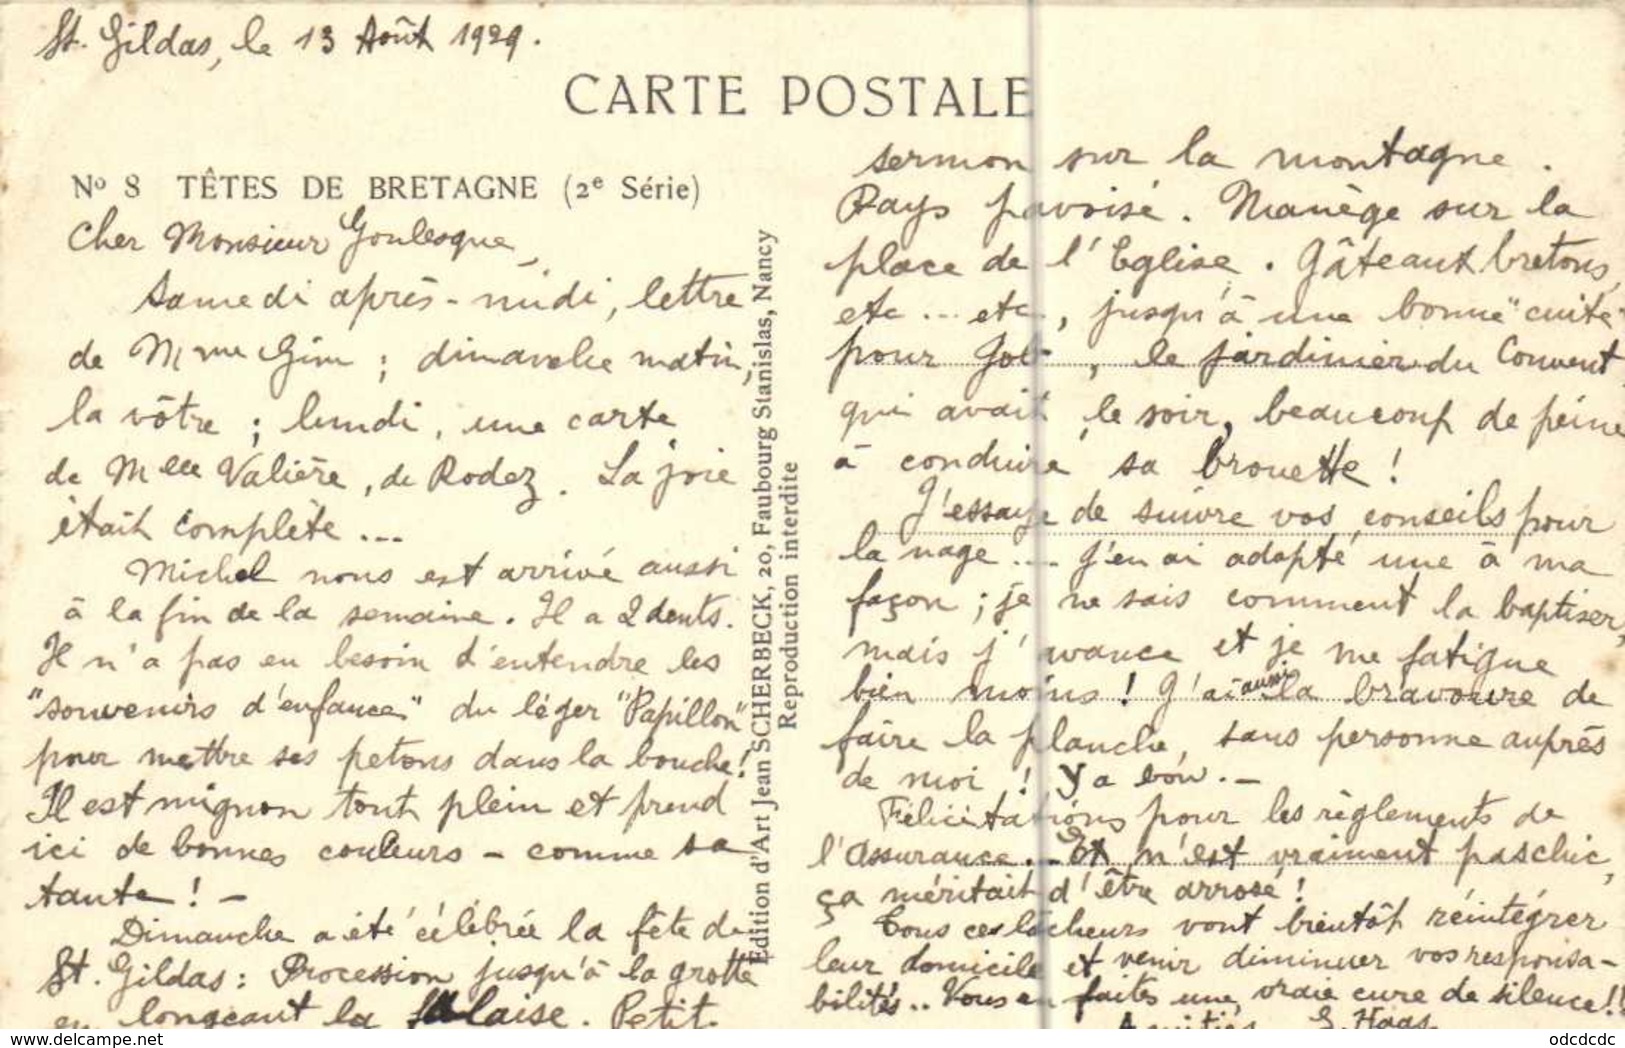 St. Gildas, le 13 Août 1929.
CARTE POSTALE
Nº 8 TÊTES DE BRETAGNE (2e Série)
Cher Monsieur Goulesque,
Samedi après-midi, lettre
de Mme Gim ; dimanche matin,
la vôtre ; lundi, une carte
de Melle Valière, de Rodez. La joie
était complète ...
Michel nous est arrivé aussi
à la fin de la semaine. Il a 2 dents.
Il n'a pas eu besoin d'entendre les
"souvenirs d'enfance" du léger "Papillon"
pour mettre ses petons dans la bouche !
Il est mignon tout plein et prend
ici de bonnes couleurs - comme sa
tante ! -
Dimanche a été célébrée la fête de
St. Gildas : Procession jusqu'à la grotte
en longeant la falaise. Petit
Edition d'Art Jean SCHERBECK, 20, Faubourg Stanislas, Nancy
Reproduction interdite
sermon sur la montagne.
Pays pavoisé. Manège sur la
place de l'Eglise. Gâteaux bretons,
etc ... etc, jusqu'à une bonne "cuite"
pour Job, le jardinier du Couvent
qui avait, le soir, beaucoup de peine
à conduire sa brouette !
J'essaye de suivre vos conseils pour
la nage .... J'en ai adopté une à ma
façon ; je ne sais comment la baptiser,
mais j'avance et je me fatigue
bien moins ! J'ai aussi la bravoure de
faire la planche, sans personne auprès
de moi ! Y a bon. -
Félicitations pour les règlements de
l'Assurance. Et n'est vraiment pas chic,
ça méritait d'être arrosé !
Tous ces lâcheurs vont bientôt réintégrer
leur domicile et venir diminuer vos responsa-
bilités.. Vous en faites une vraie cure de silence !!
Amitiés S. Haas
odcdcdc